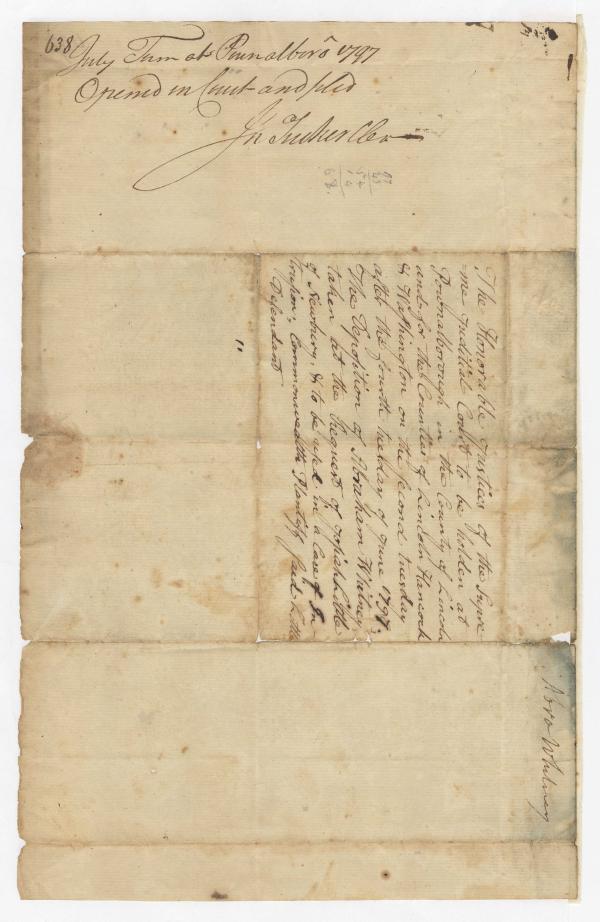 638
July Term at Pownalboro 1797
Opened in Court and filed
Jn Tucker Cler
97
43
54
14
68
The Honorable Justices of the Supre
-me Judicial Court to be holden at
Pownalborough in the County of Lincoln
and for the Counties of Lincoln Hancock
& Washington on the second tuesday
after the fourth tuesday of June 1797.
The Deposition of Abraham Whitney
taken at the Request of Josiah Little
of Newbury, & to be used in a Case of In
trusion, Commonwealth Plantiff, said Little
Defendant
Abra Whitney